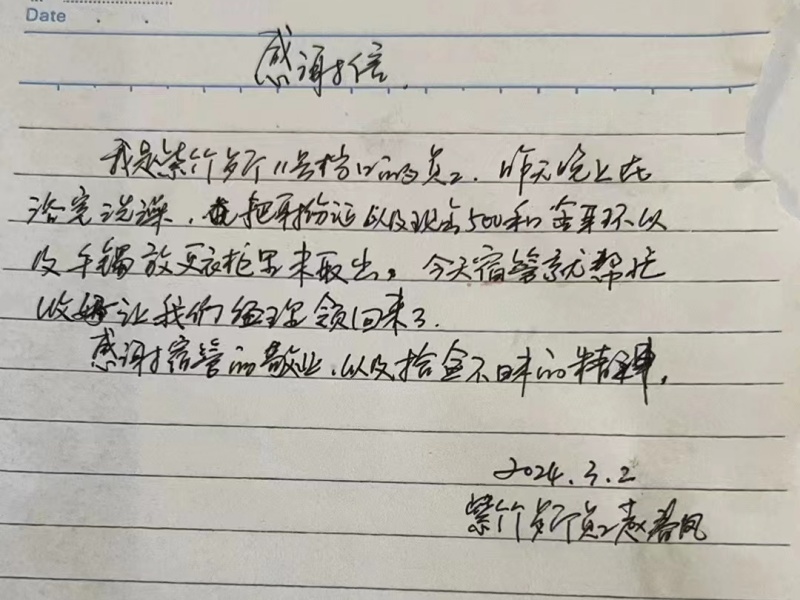 Date
感谢信.
我是紫竹厅11号档口的员工.昨天晚上在
浴室洗澡,把身份证以及现金500和金耳环以
及手镯放更衣柜里未取出。今天宿管就帮忙
收好让我们经理领回来了.
感谢宿管的敬业.以及拾金不昧的精神.
2024.3.2
紫竹厅员工赵春凤